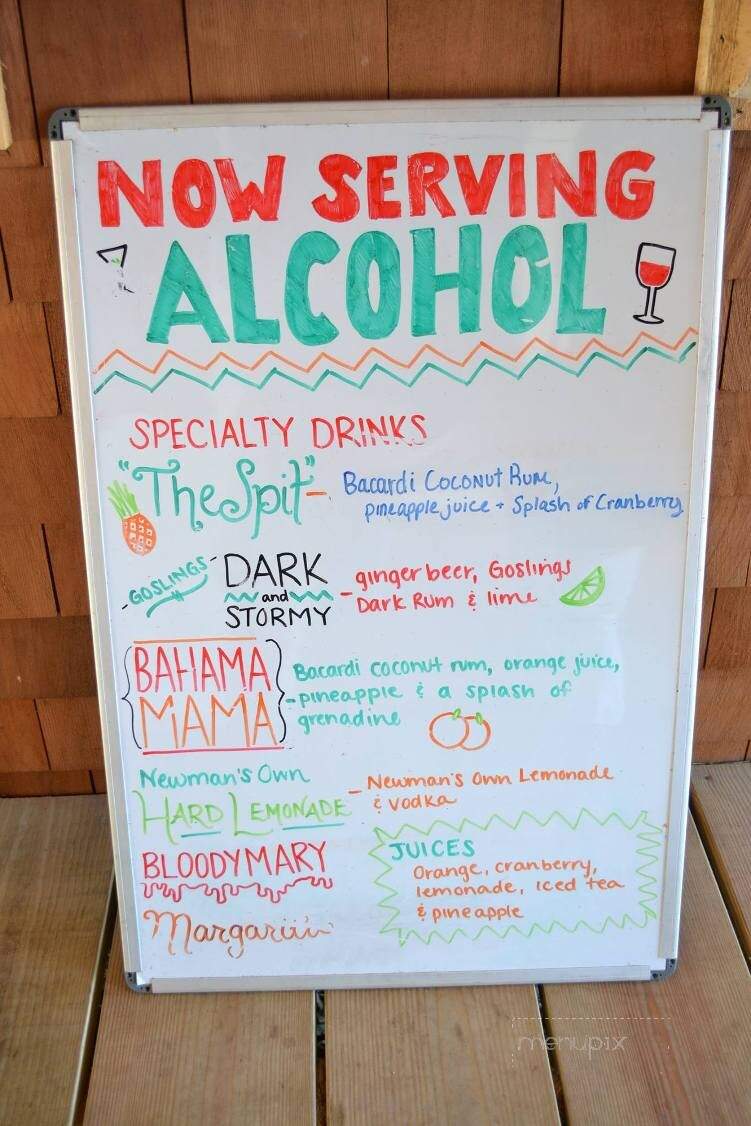 NOW SERVING
ALCOHOL
SPECIALTY DRINKS
"The Spit" - Bacardi Coconut Rum,
pineapple juice + Splash of Cranberry
GOSLINGS
DARK
and
STORMY
- ginger beer, Goslings
Dark Rum & lime
BAHAMA
MAMA
Bacardi coconut rum, orange juice,
- pineapple & a splash of
grenadine
Newman's Own
HARD LEMONADE
- Newman's Own Lemonade
& vodka
BLOODY MARY
JUICES
Orange, cranberry,
lemonade, iced tea
& pineapple
menupix